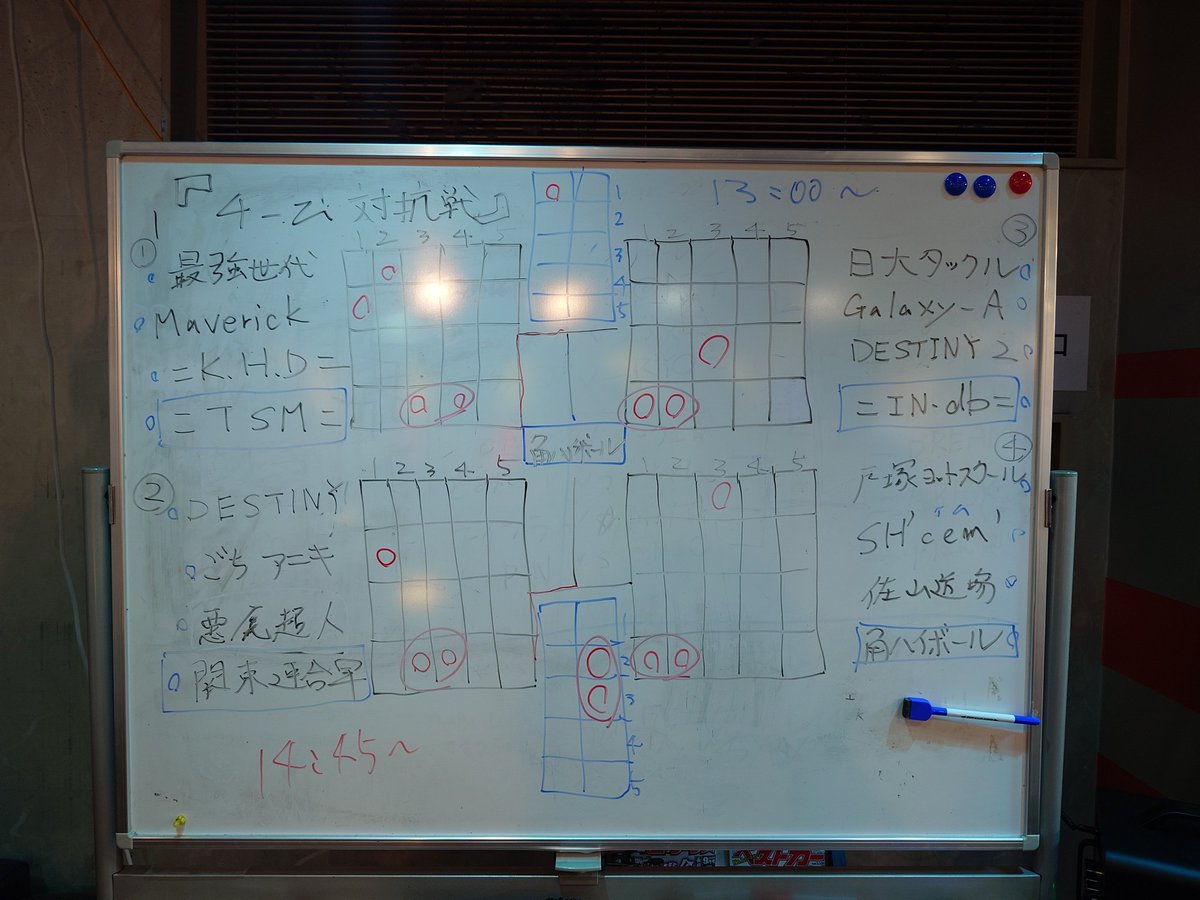 『4-Zi 対抗戦』
13:00~
①
最強世代
Maverick
=K.H.D=
=TSM=
1 2 3 4 5
1
2
3
4
5
1 2 3 4 5
③
日大タックル
Galaxy-A
DESTINY 2
=IN.db=
角ハイボール
②
DESTINY
ごちアニキ
悪尾超人
関東連合軍
1 2 3 4 5
1 2 3 4 5
④
戸塚ヨットスクール
SH'cem'
佐山道場
角ハイボール
2
3
4
5
14:45~
ベストカー